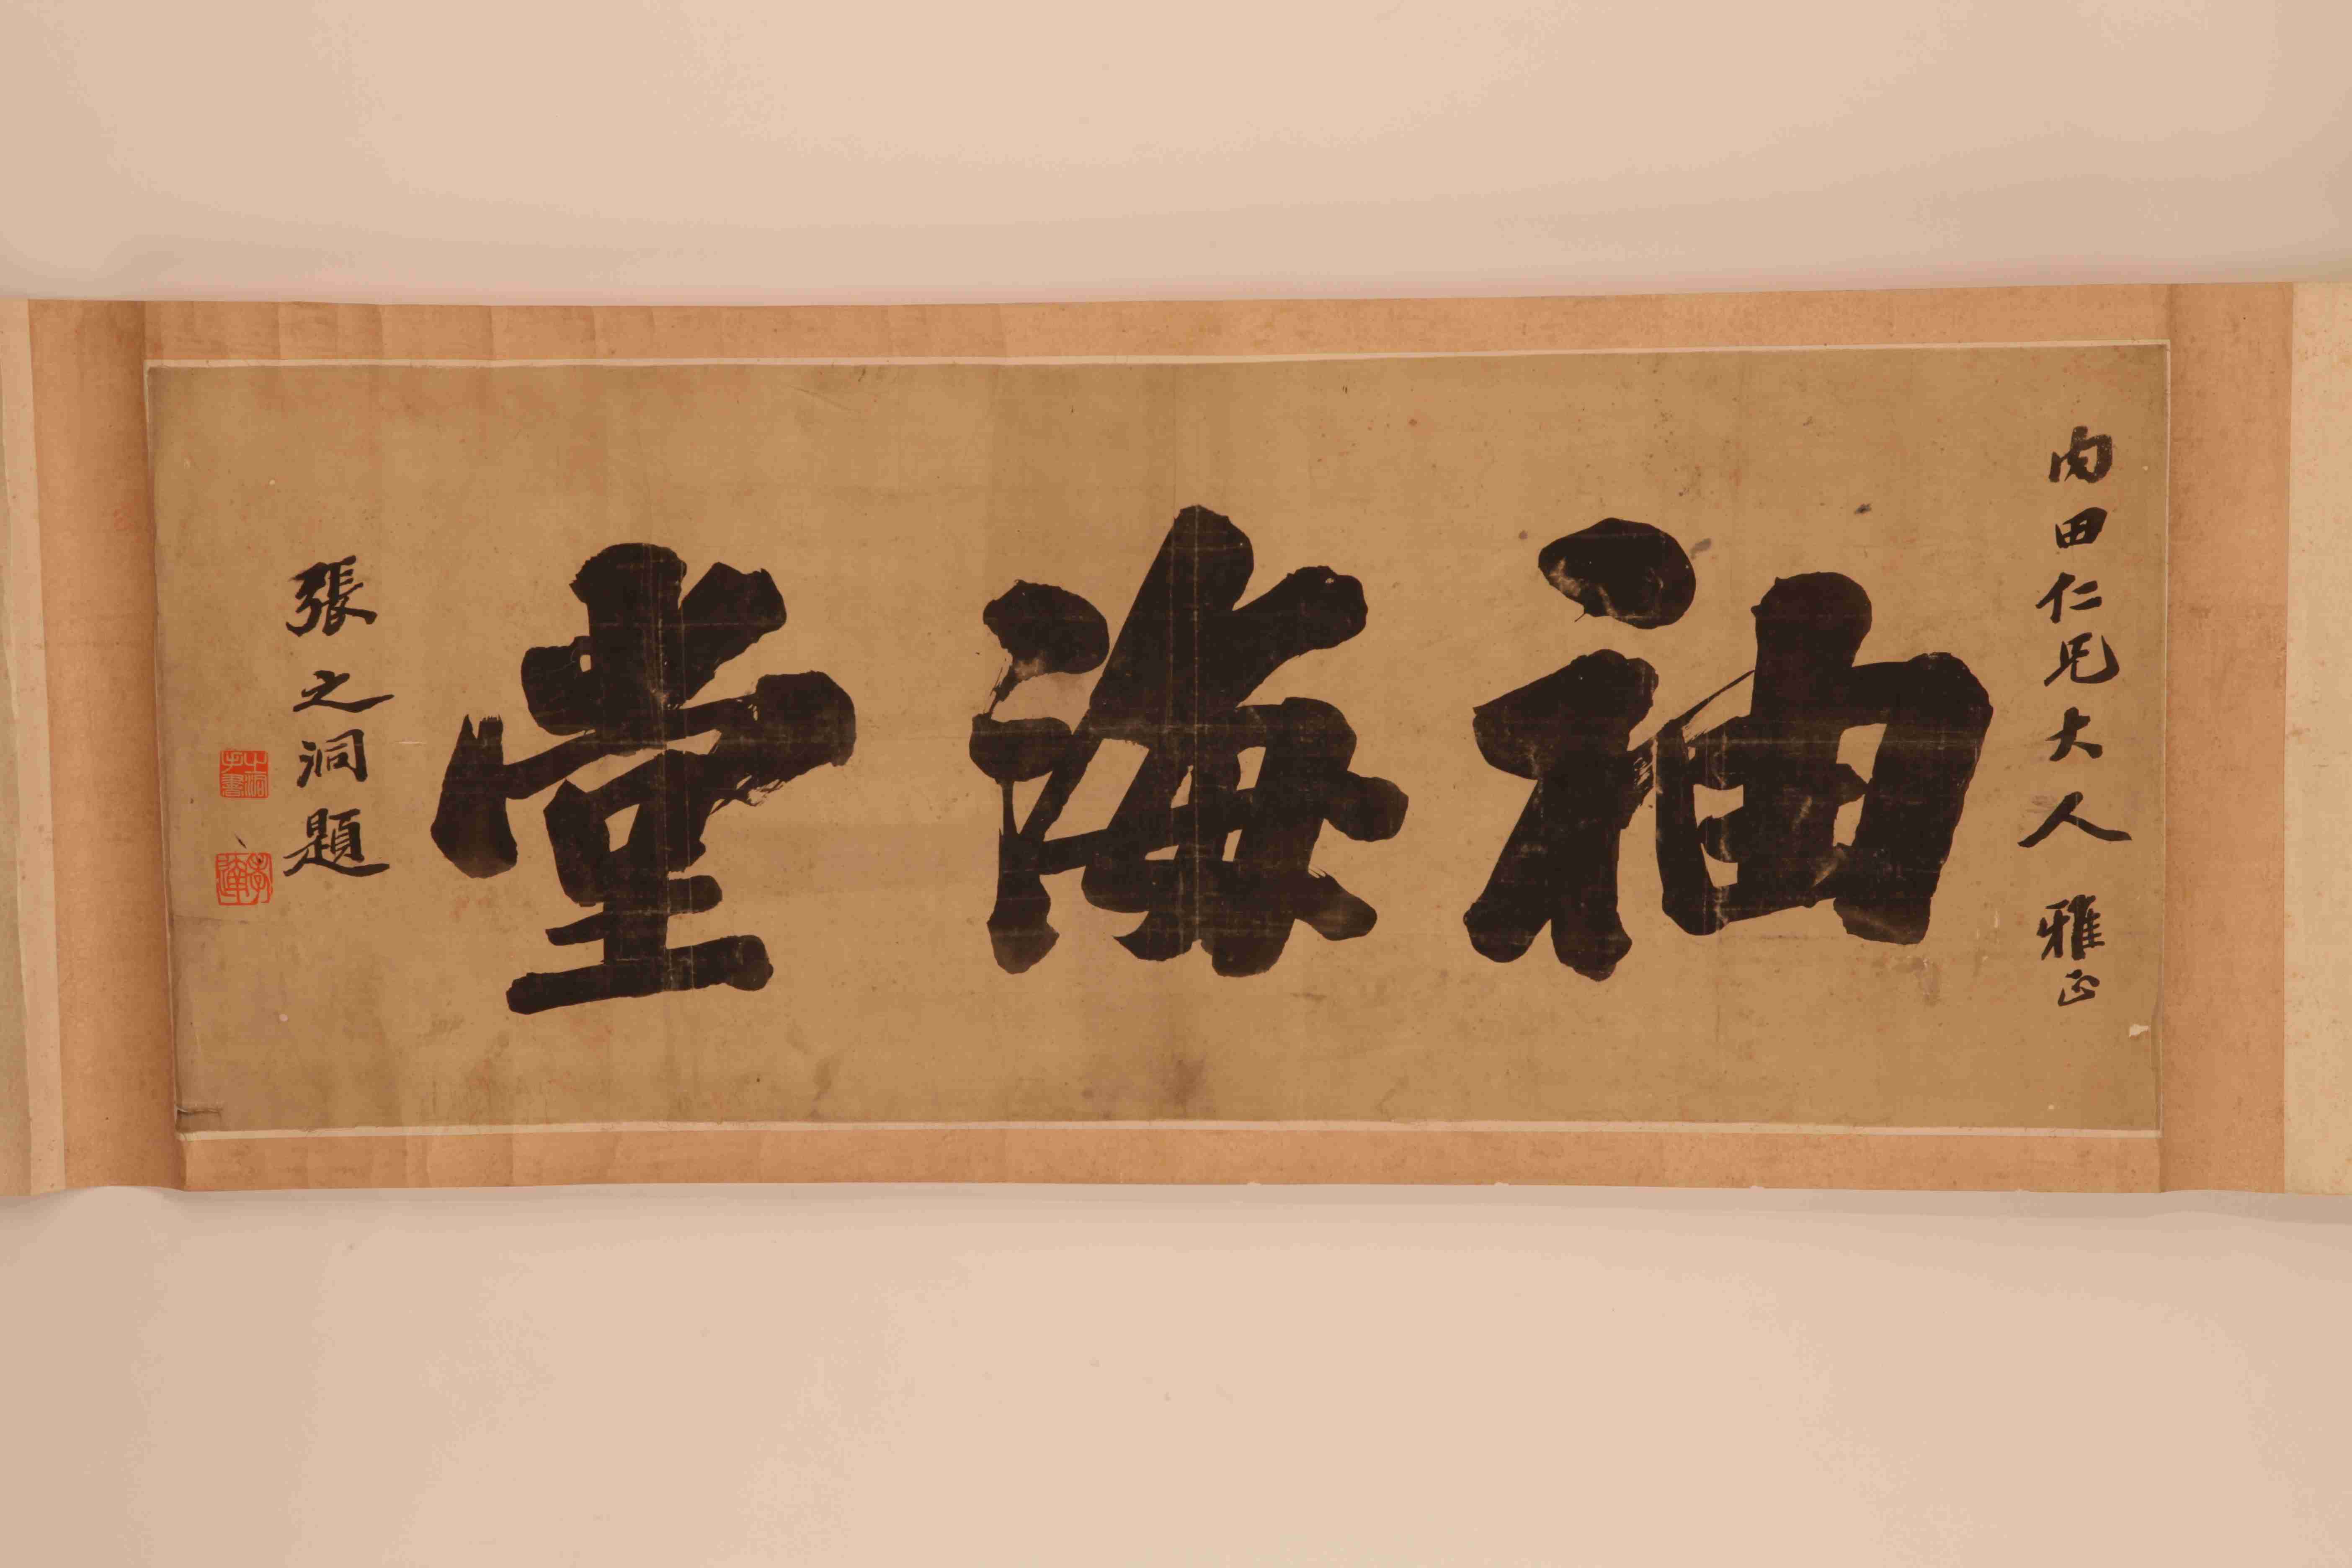 内田仁兄大人雅正
袖海堂
張之洞題